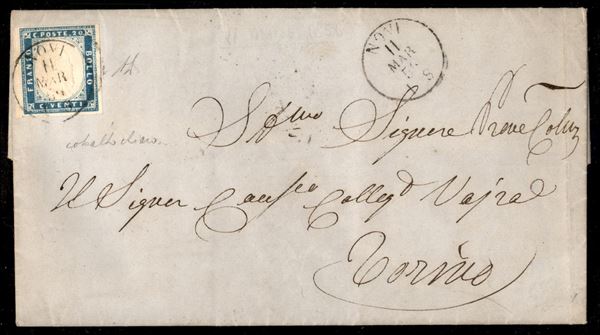 C. POSTE. 20
FRANCO
BOLLO
C. VENTI
NOVI
11
MAR
NOVI
11
MAR
S
cobalto chiaro
Signore
Il Signor Caus.co Colleg.o Vajra
Torino